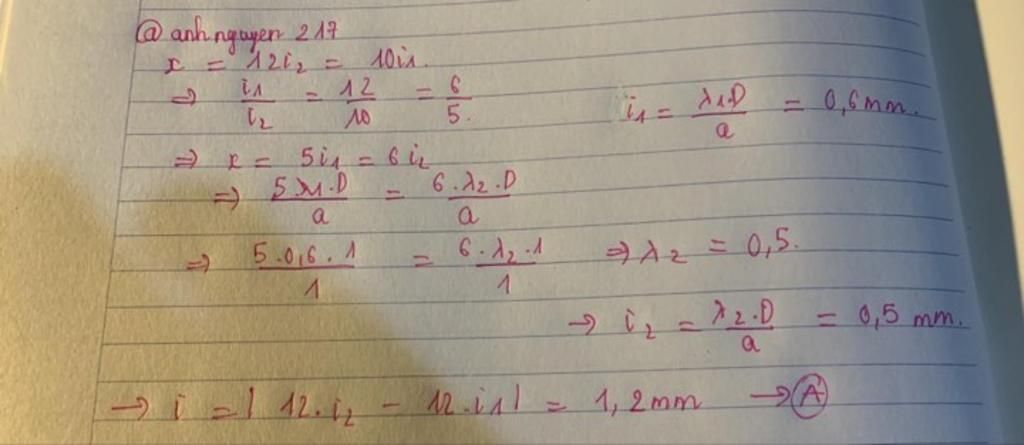 @ anhnguyen 217
x = 12i₂ = 10i₁.
⇒ i₁/i₂ = 12/10 = 6/5.
i₁ = λ₁.D/a = 0,6 mm.
⇒ x = 5i₁ = 6i₂
⇒ 5λ₁.D/a = 6.λ₂.D/a
⇒ 5.0,6.1/1 = 6.λ₂.1/1 ⇒ λ₂ = 0,5.
→ i₂ = λ₂.D/a = 0,5 mm.
→ i = | 12.i₂ - 12.i₁ | = 1,2mm → A